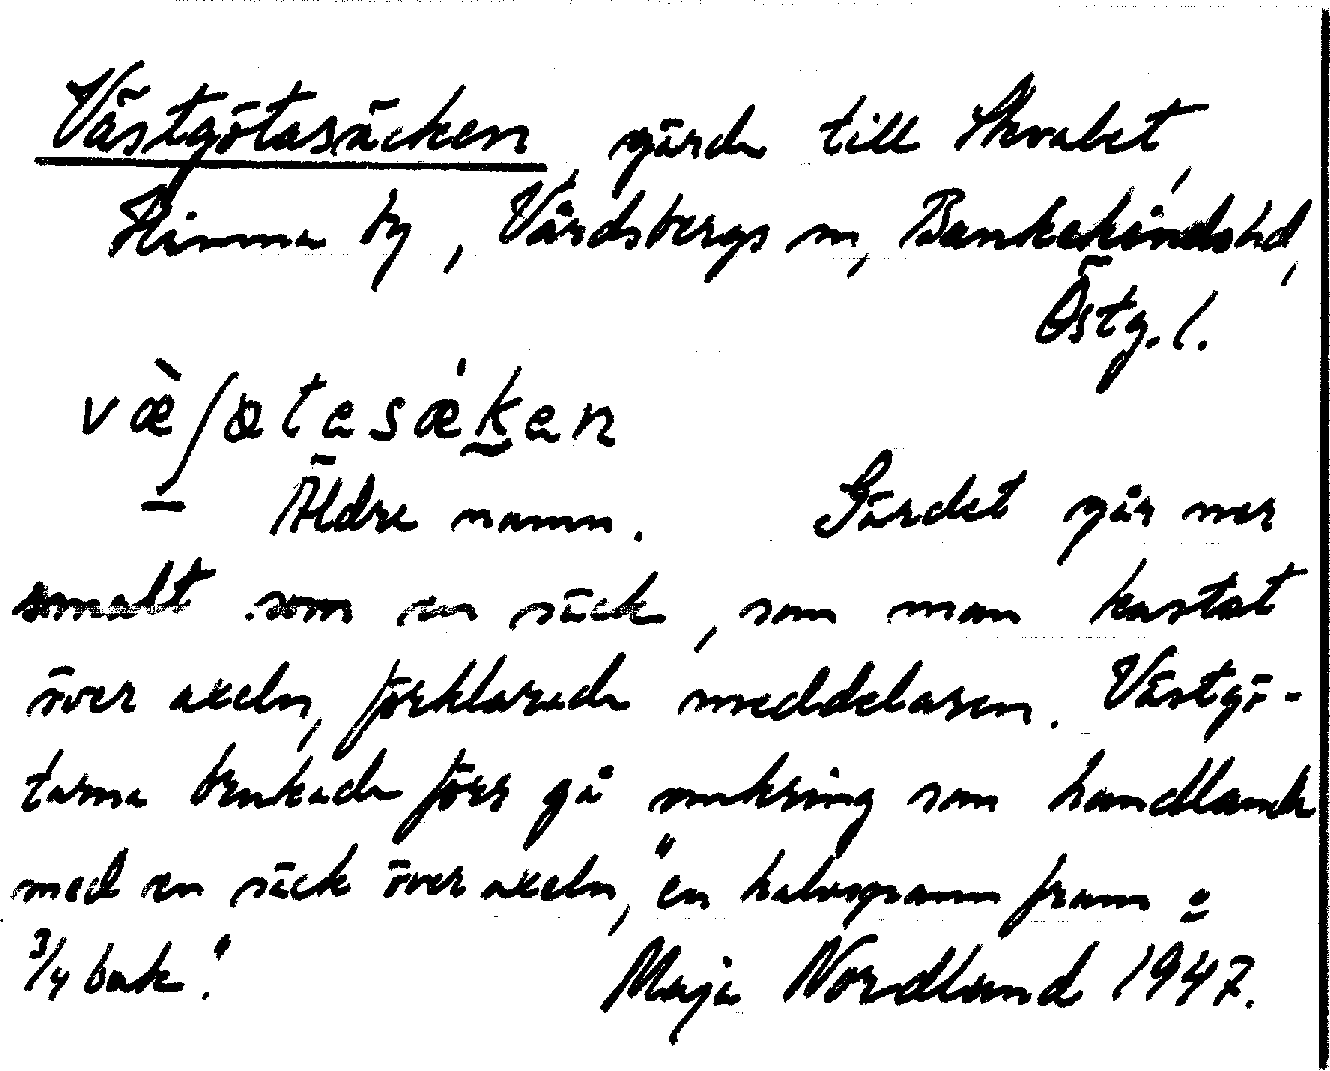 Västgötasäcken, gärde till Skvalet,
Hinna by, Vårdsbergs sn, Bankekinds hd,
Östg. l.
– Äldre namn. Gärdet går ner
smalt som en säck, som man kastat
över axeln, förklarade meddelaren. Västgö-
tarna brukade förr gå omkring som handlande
med en säck över axeln, "en halvspann fram o
3/4 bak."
Maja Nordlund 1947.